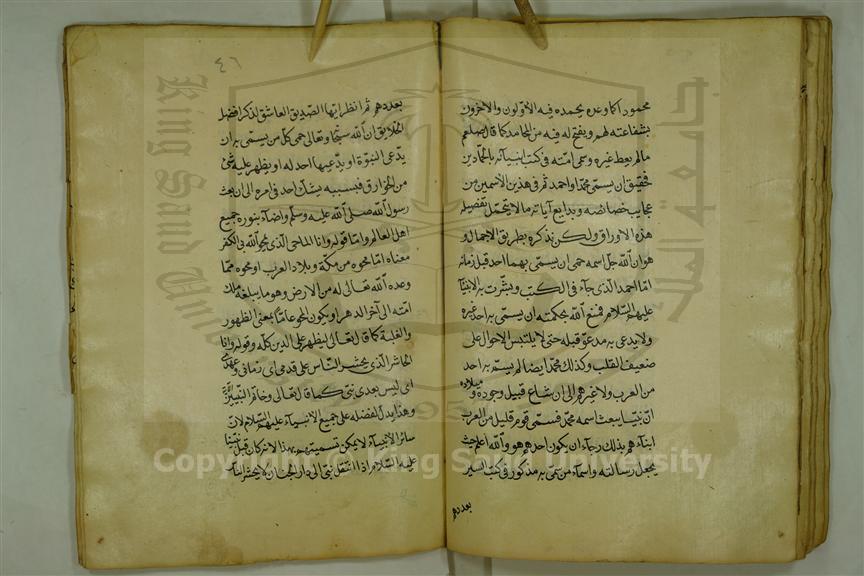 محمودا كما وعده يحمده فيه الاولون والاخرون
بشفاعته لهم ويفتح له فيه من المحامد كما قال صلعم
مالم يعط غيره وسمى امته في كتب انبيائه بالحمادين
فحقيق ان يسمى محمدا واحمد ثم في هذين الاسمين من
عجايب خصائصه وبدايع آياته مالا يتحمل تفصيله
هذه الاوراق ولكن نذكره بطريق الاجمال و
هو ان الله جل اسمه حمى ان يسمى بهما احد قبل زمانه
اما احمد الذي جاء في الكتب وبشرت به الانبياء
عليهم السلام فمنع الله بحكمته ان يسمى به احد غيره
ولا يدعى به مدعو قبله حتى لا يلتبس الاحوال على
ضعيف القلب وكذلك محمد ايضا لم يسم به احد
من العرب ولا غيرهم الى ان شاع قبيل وجوده وميلاده
ان نبيا يبعث اسمه محمد فسمى قوم قليل من العرب
ابناءهم بذلك رجاء ان يكون احدهم هو والله اعلم حيث
يجعل رسالته واسماء من سمى به مذكور في كتب السير
بعددهم
٤٦
بعددهم ثم انظر ايها الصديق العاشق لذكر افضل
الخلايق ان الله سبحانه وتعالى حمى كل من يسمى به ان
يدعى النبوة او يدعيها احد له او يظهر عليه شئ
من الخوارق فبسببه يشك احد في امره الى ان بعث
رسول الله صلى الله عليه وسلم واضاء بنوره جميع
اهل العالم واما قوله وانا الماحي الذي يمحو الله بي الكفر
معناه اما محوه من مكة وبلاد العرب او محوه مما
وعده الله تعالى له من الارض وهو ما يبلغه ملك
امته الى آخر الدهر او يكون المحو عاما بمعنى الظهور
والغلبة كما قال تعالى ليظهره على الدين كله وقوله وانا
الحاشر الذي يحشر الناس على قدمي اي زماني وعهدي
اي ليس بعدي نبي كما قال تعالى وخاتم النبيين
وهذا يدل لفضله على جميع الانبياء عليهم السلام لان
سائر الانبياء لا يمكن تسميتهم بهذا لانه كان قبل نبينا
عليه السلام اذا انتقل نبي الى دار الجنان لا يحشر الناس
King Saud University
جامعة الملك
1957
Copyright © King Saud University